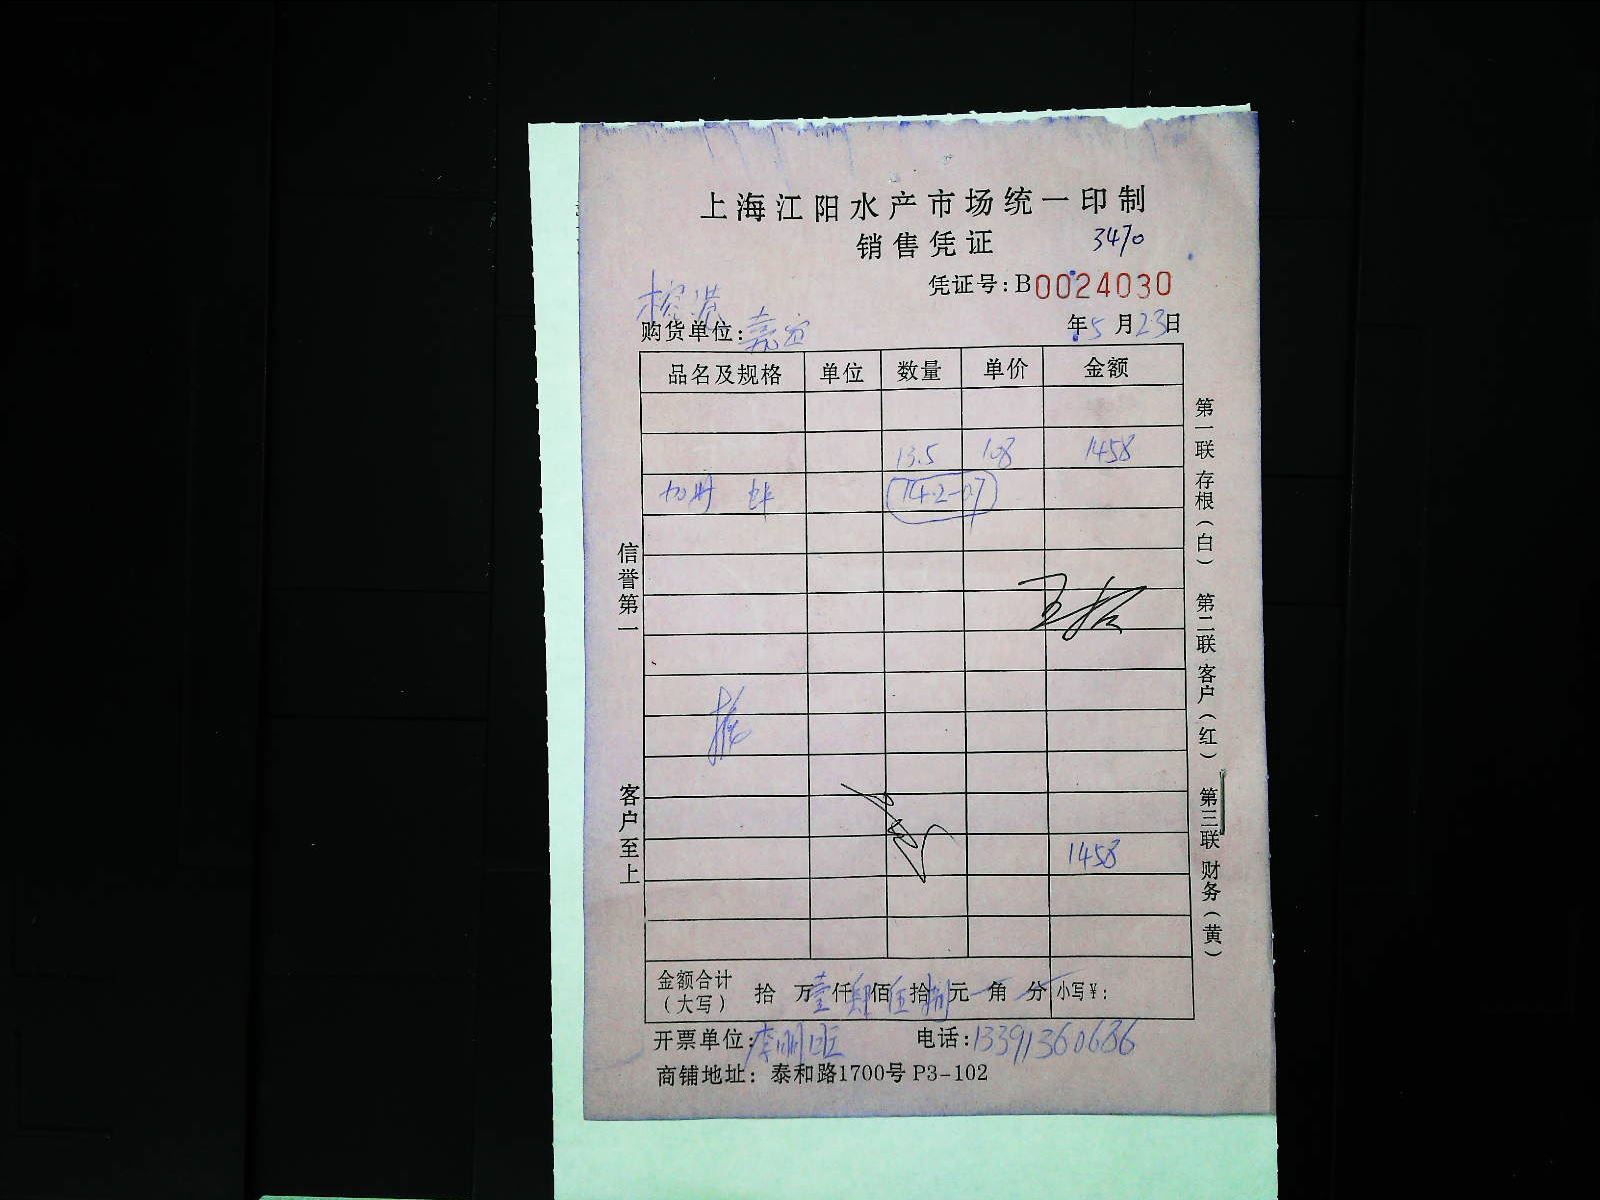 上海江阳水产市场统一印制
销售凭证 3470
凭证号:B0024030
购货单位: 年5月23日
品名及规格 单位 数量 单价 金额
13.5 108 1458
14.2-0.7
1458
金额合计(大写) 拾 万壹仟肆佰伍拾捌元 角 分 小写¥:
开票单位:李明 电话:13391360686
商铺地址: 泰和路1700号 P3-102
信誉第一
客户至上
第一联 存根(白) 第二联 客户(红) 第三联 财务(黄)